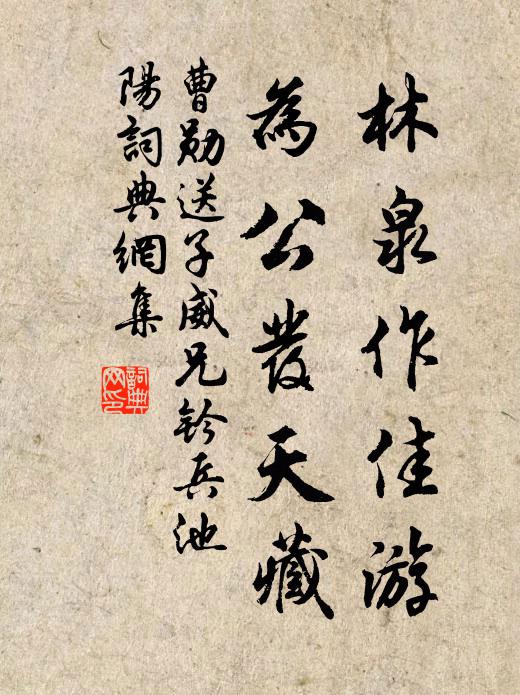 林泉作佳游
為公發天藏
曹勛送子威兄鈐兵池
陽詞典網集
詞典網印